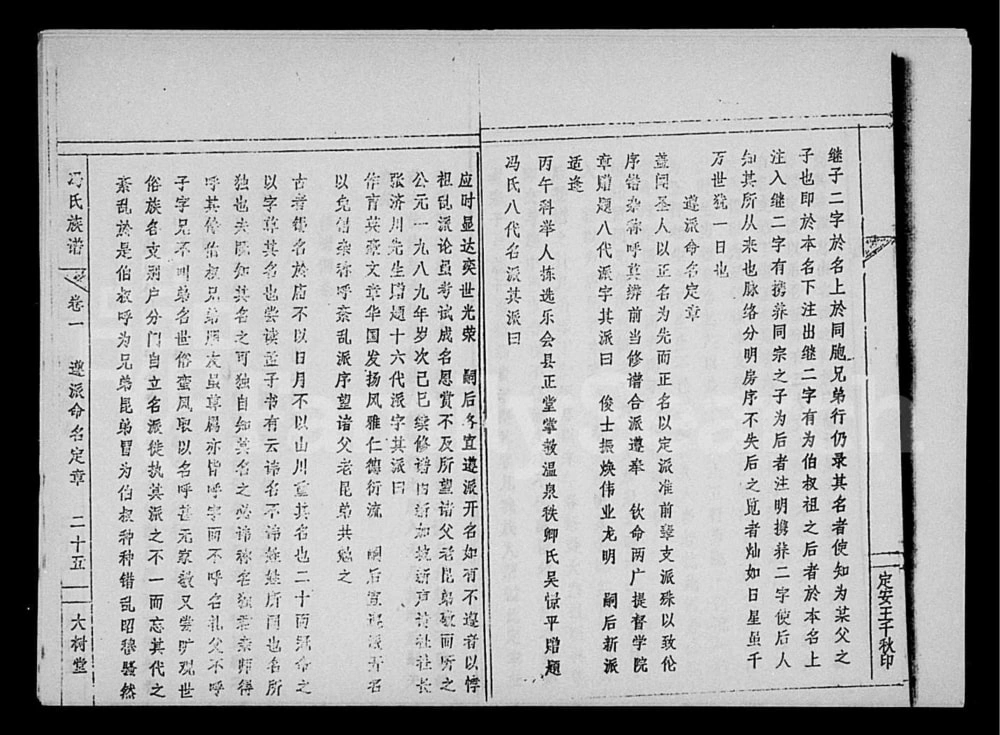 继子二字於名上於同胞兄弟行仍录其名者使知为某父之
子也即於本名下注出继二字有为伯叔祖之后者於本名上
注入继二字有携养同宗之子为后者注明携养二字使后人
知其所从来也脉络分明房序不失后之览者灿如日星虽千
万世犹一日也
遵派命名定章
盖闻圣人以正名为先而正名以定派准前辈支派殊以致伦
序错杂称呼莫辨前当修谱合派遵奉 钦命两广提督学院
章赠题八代派字其派曰 俊士振焕伟业龙明 嗣后新派
适逢
丙午科举人拣选乐会县正堂掌教温泉秩卿氏吴惊平赠题
冯氏八代名派其派曰
应时显达奕世光荣 嗣后务宜遵派开名如有不遵者以悖
祖乱派论虽考试成名恩赏不及所望诸父老昆弟敬而听之
公元一九八九年岁次己巳续修谱内新加坡新声诗社社长
张济川先生赠题十六代派字其派曰
作育英豪文章华国发扬风雅仁德衍流 嗣后宜遵派弄名
以免错杂称呼紊乱派序望诸父老昆弟共勉之
古者锡名於庙不以日月不以山川重其名也二十而冠命之
以字尊其名也尝读孟子书有云讳名不讳姓姓所同也名所
独也夫既知其名之可独自知其名之必讳称名独若亲师得
呼其修伯叔兄弟朋友虽尊属亦皆呼字而不呼名礼父不呼
子字兄不叫弟名世俗蛮风取以名呼甚无家教又尝旷观世
俗族名支别户分门自立名派徒执其派之不一而忘其代之
紊乱於是伯叔呼为兄弟昆弟冒为伯叔种种错乱昭穆骚然
冯氏族谱 卷一 遵派命名定章 二十五 大树堂
定安王千秋印